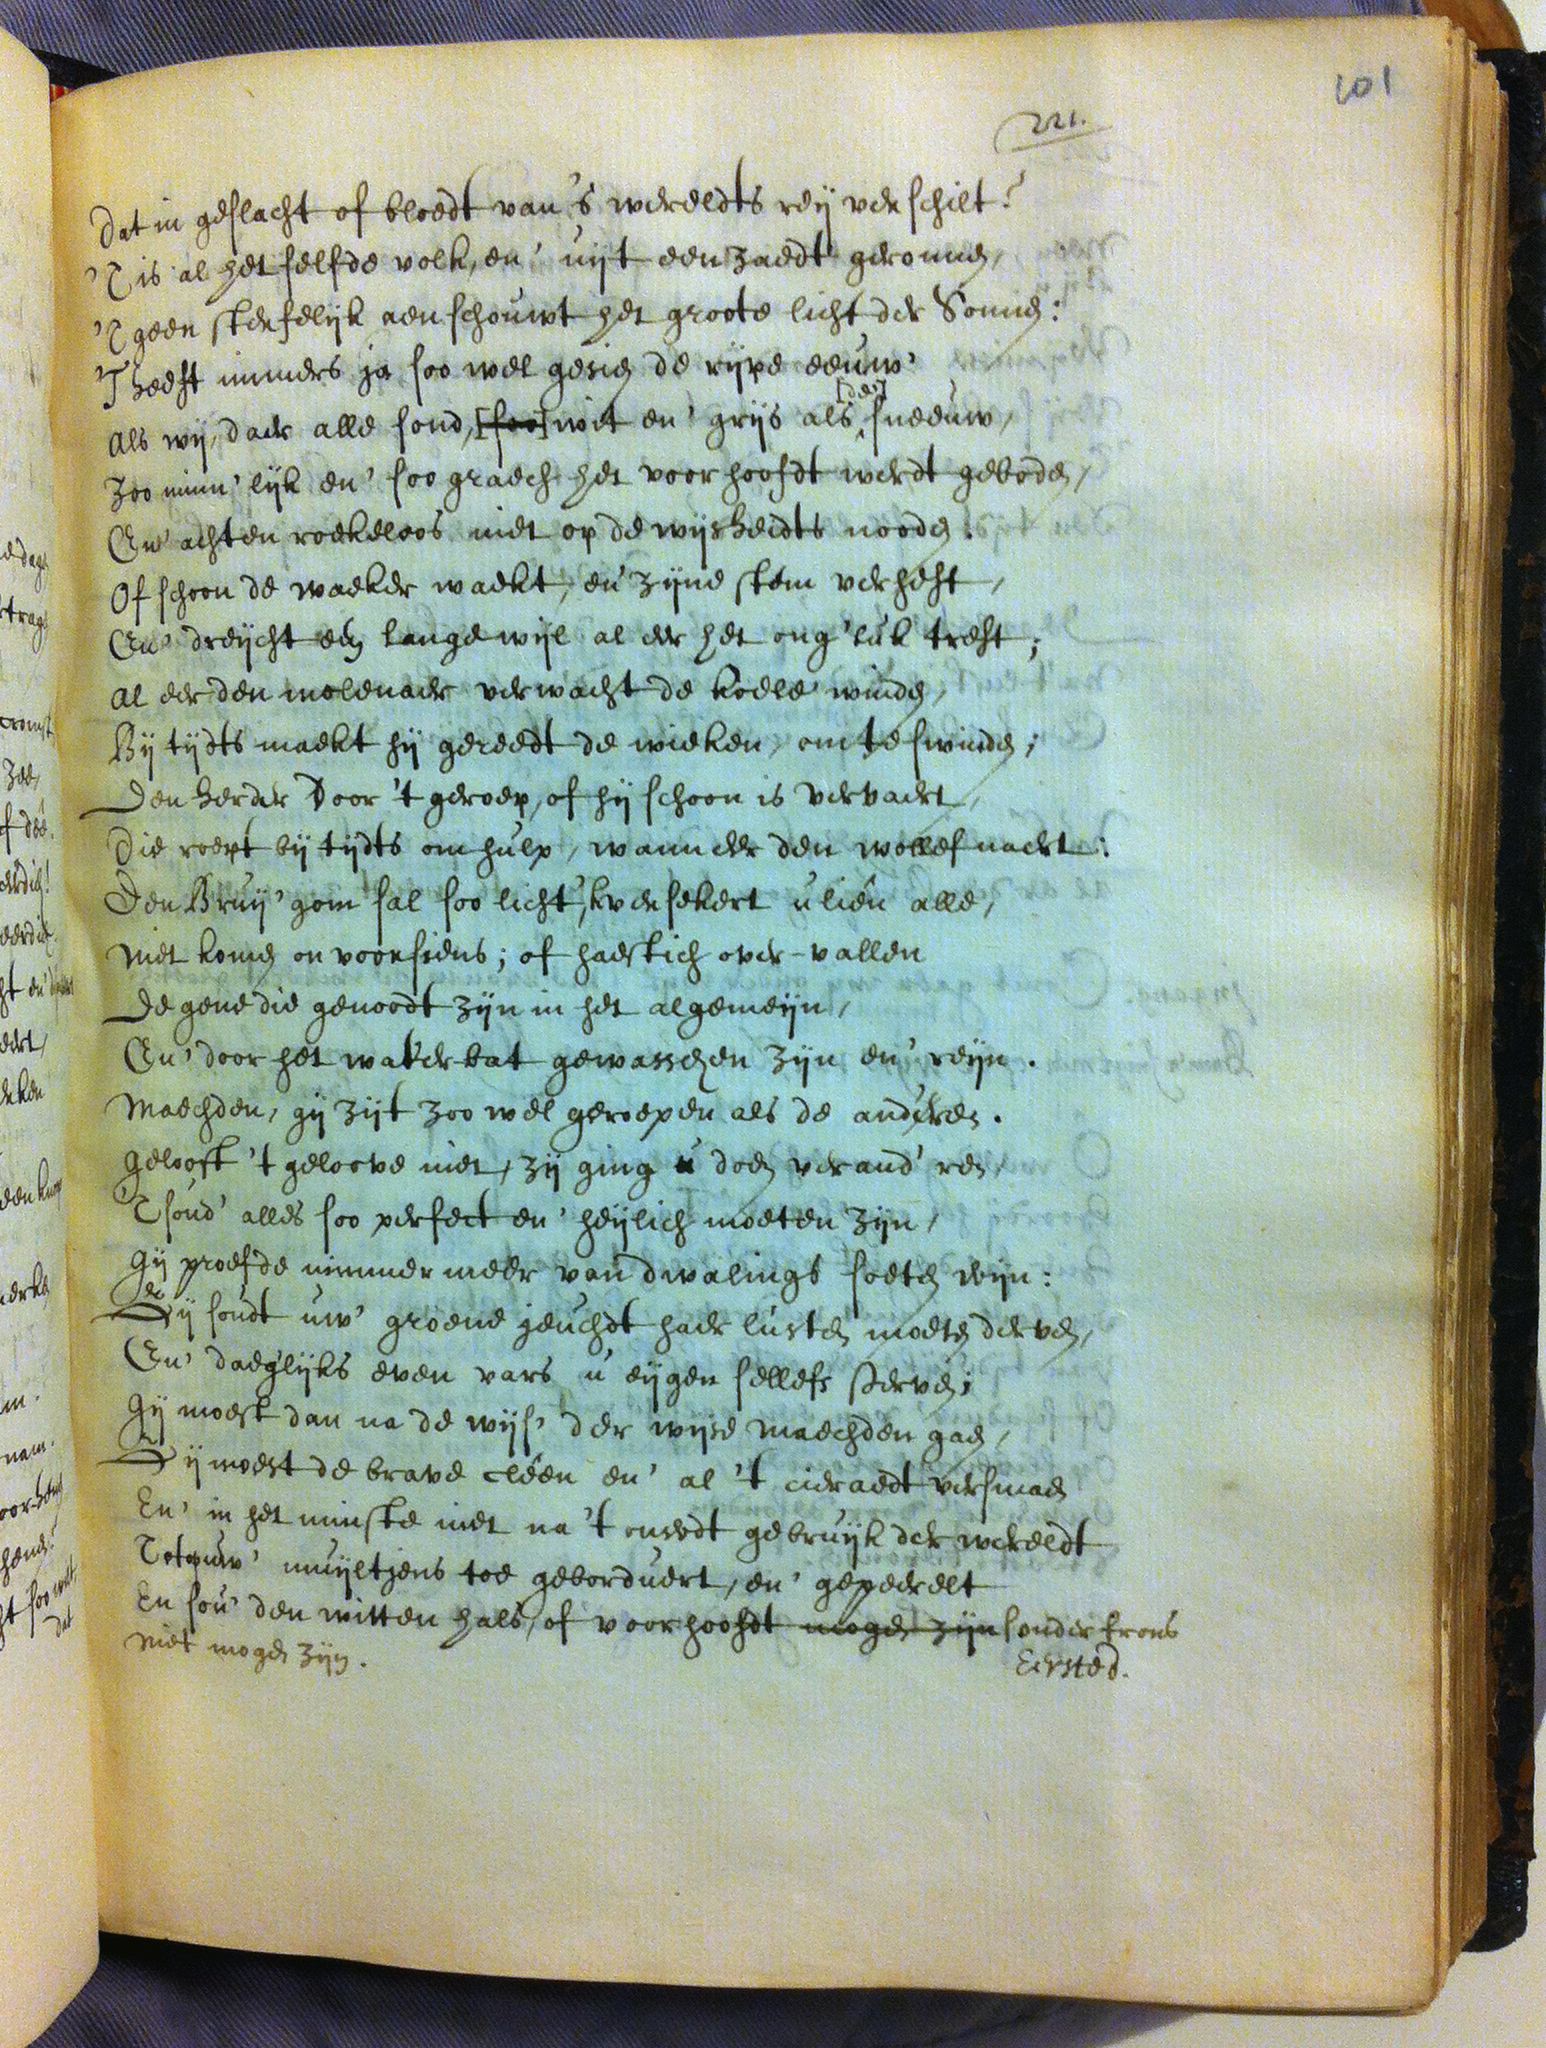 101
221.
Dat in geslacht of bloedt van 's wereldts reij verschilt?
'T is al het selfde volk, en' uijt een zaedt geronnen,
'T geen sterfelijk aenschouwt het groote licht der Sonnen:
'T heeft immers ja soo wel gesien de rijpe eeuw'
Als wij, daer alle sond, [soo] wit en' grijs als [de'] sneeuw,
Zoo minn'lijk en' soo graech het voorhoofdt werdt geboden,
En' achten roekeloos niet op de wijsheidts nooden.
Of schoon de waeker waekt, en' zijne stem verheft,
En' dreijcht een lange wijl al eer het ong'luk treft;
Al eer den molenaer verwacht de koele winden,
Bij tijdts maekt hij gereedt de wieken, om te swinden;
Den herder door 't geroep, of hij schoon is vervaert,
Die roept bij tijdts om hulp, wanneer den wollef naert:
Den Bruij'gom sal soo licht, 'k versekert ulién alle,
Niet komen onvoorsiens; of haestich over-vallen
De gene die genoodt zijn in het algemeijn,
En' door het waterbat gewasschen zijn en' reijn.
Maechden, gij zijt zoo wel geroepen als de anderen.
Gelooft 't geloove niet, zij ging u doen verand'ren,
'T soud' alles soo perfect en' heijlich moeten zijn,
Gij proefde nimmermeer van dwalings soeten wijn:
Gij soudt uw' groene jeuchdt haer lusten moeten derven,
En' daeglijks even vars u eijgen sellefs sterven;
Gij moest dan na de wijs' der wijse maechden gaen,
Gij moest de brave cléen en' al 't cieraedt versmaen
En' in het minste niet na 't onvedt gebruijk der wereldt
Tot uw' muijltjens toe geborduert, en' gepeerelt
En sou' den witten hals, of voorhoofdt mogen zijn sonder frons
niet mogen zijn.
Eersted.